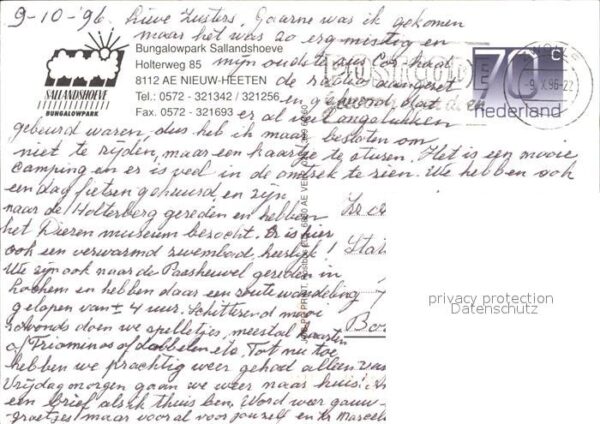 9-10-'96. Lieve Zusters, Gaarne was ik gekomen
maar het was zo erg mistig en
Bungalowpark Sallandshoeve
mijn oudste zus Cor had
Holterweg 85
de radio aangezet
8112 AE NIEUW-HEETEN
Tel.: 0572 - 321342 / 321256
en gehoord dat er
Fax. 0572 - 321693
er al veel ongelukken
SALLANDSHOEVE
BUNGALOWPARK
70 c
nederland
ZWOLLE
-9.X.96-22
gebeurd waren, dus heb ik maar besloten om
niet te rijden, maar een kaartje te sturen. Het is een mooie
camping en er is veel in de omtrek te zien. We hebben ook
een dag fietsen gehuurd en zijn
naar de Holterberg gereden en hebben
het Dieren museum bezocht. Er is hier
ook een verwarmd zwembad, heerlijk!
We zijn ook naar de Paasheuvel gereden in
Lochem en hebben daar een route wandeling
gelopen van ± 4 uur. Schitterend mooi
's avonds doen we spelletjes, meestal kaarten
of Triominos of dobbelen etc. Tot nu toe
hebben we prachtig weer gehad alleen
Vrijdagmorgen gaan we weer naar huis!
een brief als ik thuis ben. Word weer gauw
groetjes maar vooral voor jouzelf en
privacy protection
Datenschutz